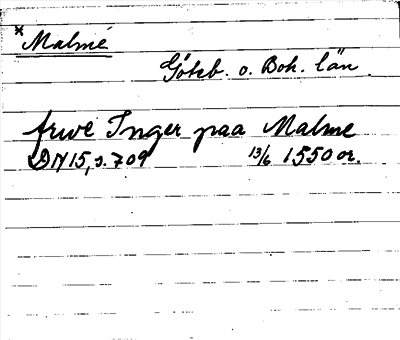 * Malmé
Göteb. o. Boh. län.
frwe Inger paa Malme
DN 15, s. 709 13/6 1550 or.